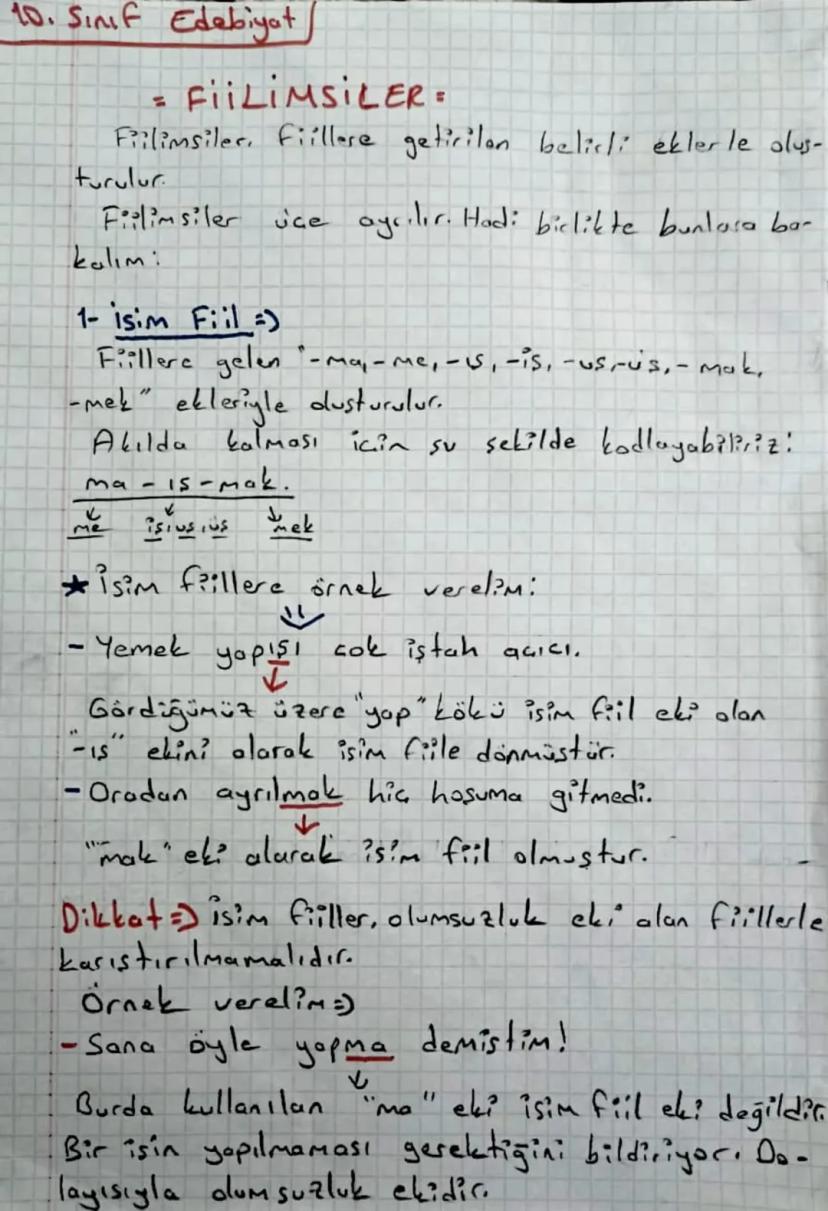 10. Sınıf Edebiyat
= FİİLİMSİLER =
Fiilimsiler, fiillere getirilen belirli eklerle oluş-
turulur.
Fiilimsiler üçe ayrılır. Hadi birlikte bunlara ba-
kalım:
1- İsim Fiil =>
Fiillere gelen "-ma, -me, -ış, -iş, -uş, -üş, - mak,
-mek" ekleriyle oluşturulur.
Akılda kalması için şu şekilde kodlayabiliriz:
ma - ış - mak.
me iş, uş, üş mek
★ İsim fiillere örnek verelim:
- Yemek yapışı çok iştah açıcı.
Gördüğümüz üzere "yap" kökü isim fiil eki olan
"-ış" ekini alarak isim fiile dönmüştür.
- Oradan ayrılmak hiç hoşuma gitmedi.
"mak" eki alarak isim fiil olmuştur.
Dikkat => İsim fiiller, olumsuzluk eki alan fiillerle
karıştırılmamalıdır.
Örnek verelim =>
- Sana öyle yapma demiştim!
Burda kullanılan "ma" eki isim fiil eki değildir.
Bir işin yapılmaması gerektiğini bildiriyor. Do-
layısıyla olumsuzluk ekidir.